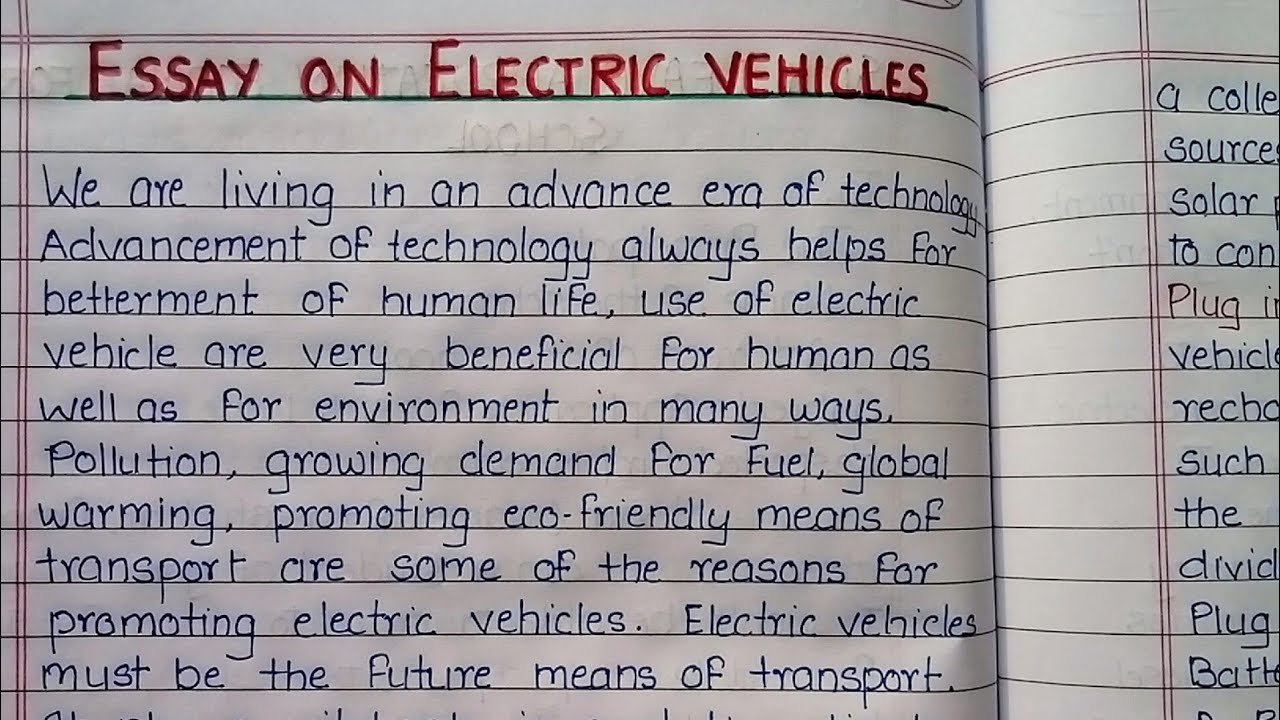 ESSAY ON ELECTRIC VEHICLES
We are living in an advance era of technology
Advancement of technology always helps for
betterment of human life, use of electric
vehicle are very beneficial for human as
well as for environment in many ways.
Pollution, growing demand for fuel, global
warming, promoting eco-friendly means of
transport are some of the reasons for
promoting electric vehicles. Electric vehicles
must be the future means of transport.
a colle
sources
solar
to con
Plug i
vehicle
recha
such
the
divid
Plug
Batte